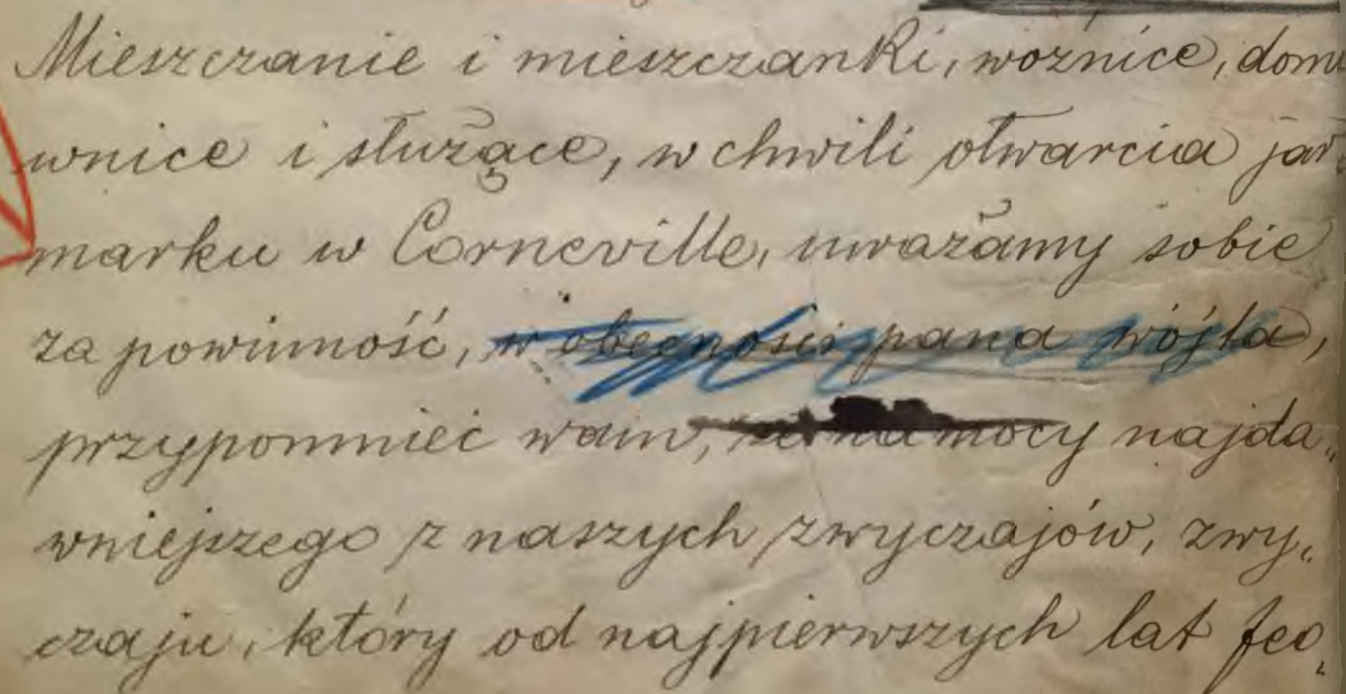 Mieszczanie i mieszczanki, woźnice, domo
wnice i służące, w chwili otwarcia jar„
marku w Corneville, uważamy sobie
za powinność, w obecności pana wójta,
przypomnieć wam, że na mocy najda„
wniejszego z naszych zwyczajów, zwy„
czaju, który od najpierwszych lat feo„